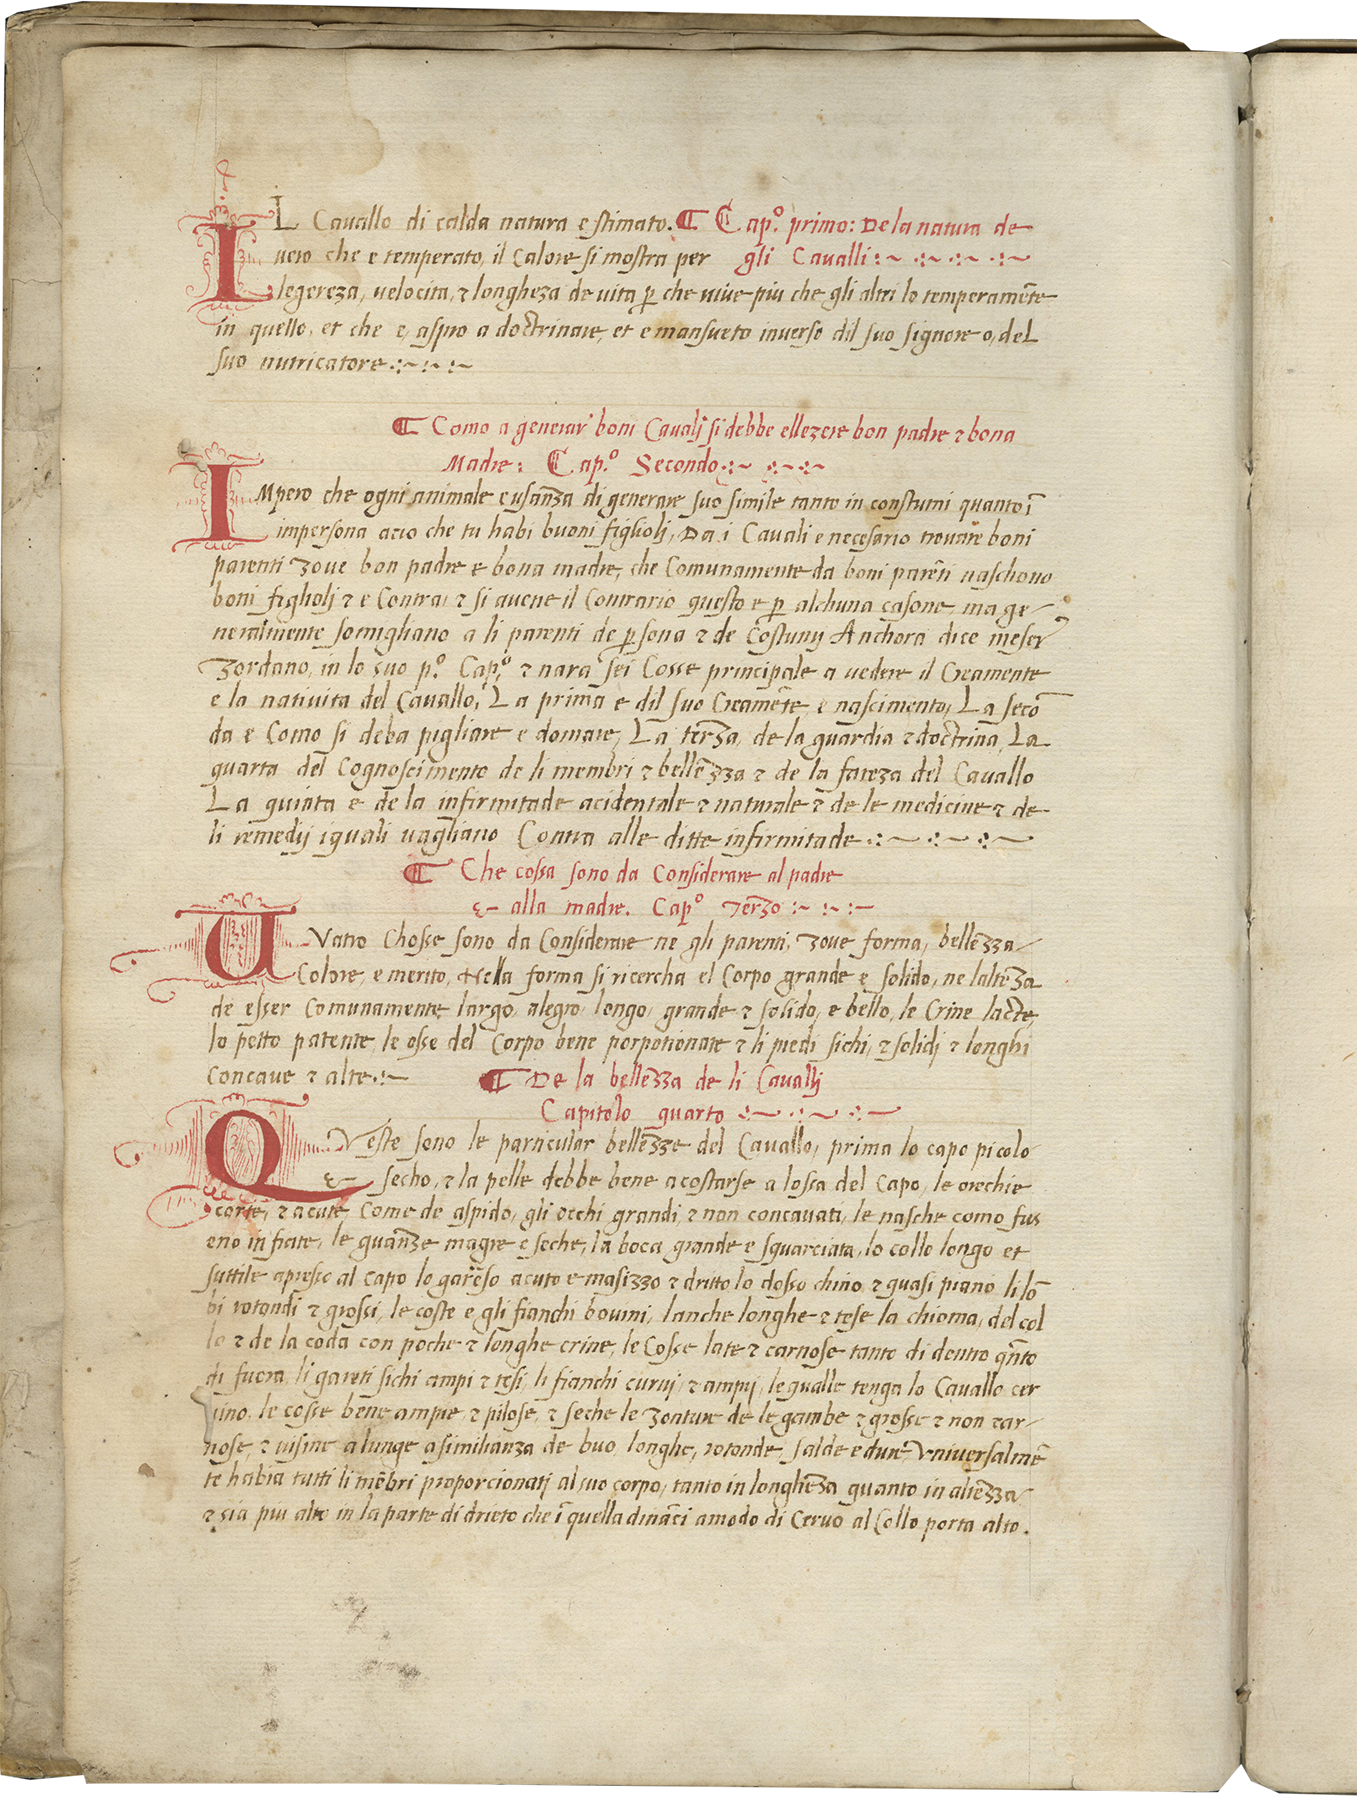 IL Cavallo di calda natura e stimato. ¶ Cap.º primo: De la natura de
vero che e temperato, il Calore si mostra per gli Cavalli
legereza, velocita, & longheza de vita p che vive piu che gli altri lo temperamẽte
in quello, et che e, aspro a doctrinare, et e mansueto inverso dil suo signore o, del
suo nutricatore
¶ Como a generar boni Cavalj si debbe ellezere bon padre & bona
Madre: Cap.º Secondo
IMpero che ogni animale e usãnza di generare suo simile tanto in constumi quanto ĩ
impersona acio che tu habi buoni figlioli, Da i Cavali e necesario trovare boni
parenti zove bon padre e bona madre, che Comunamente da boni parẽti naschono
boni figlioli & e Contra, & si avene il Contrario questo e p alchuna casone, ma ge-
neralmente somigliano a li parenti de psona & de Costumj Anchora dice meser
Zordano, in lo suo p.º Cap.º & nara sei Cosse principale a vedere il Creamente
e la nativita del Cavallo, La prima e dil suo Creamẽte, e nascimento, La secõ
da e Como si deba pigliare e domare, La terza, de la guardia & doctrina, La
quarta del Cognoscimento de li membri & bellezza & de la fateza del Cavallo
La quinta e de la infirmitade acidentale & naturale & de le medicine & de
li remedij iquali vagliano Contra alle ditte infirmitade
¶ Che cossa sono da Considerare al padre
& alla madre. Cap.º Terzo
QVatro Chosse sono da Considerare ne gli parenti, zove forma, bellezza
Colore, e merito, Nella forma si ricercha el Corpo grande e solido, ne laltẽza
de esser Comunamente, largo, alegro, longo, grande & solido, e bello, le Crine lacte,
lo petto patente, le osse del Corpo bene porpotionate & li piedi sichi, & solidj & longhi
Concave & alte
¶ De la bellezza de li Cavallj
Capitolo quarto
QVeste sono le particular bellezze del Cavallo, prima lo capo picolo
& secho, & la pelle debbe bene acostarse a lossa del Capo, le orechie
corte, & acute Come de aspido, gli occhi grandi, & non concavati, le nasche como fus
eno infiate, le guanze magre e seche, la boca grande e squarciata, lo collo longo et
suttile apresso al capo lo gareso acuto e masizzo & dritto lo dosso chino, & quasi piano, li lõ
bi rotondi & grossi, le coste e gli fianchi bovini, lanche longhe & tese la chioma, del col
lo & de la coda con poche & longhe crine, le Cosse late & carnose tanto di dentro q̃nto
di fuora, li gareti sichi ampi & tesi, li fianchi curvj, & ampij, le qualle tenga lo Cavallo cer
vino, le cosse bene ampie, & pilose, & seche le zonture de le gambe & grosse & non car-
nose, & visine a lunge a similianza de buo, longhe, rotonde, salde e dure, Vniversalmẽ
te habia tutti li mẽbri proporcionati al suo corpo, tanto in longheza quanto in altezza
& sia piu alto in la parte di drieto che ĩ quella dinãci a modo di Cervo al Collo porta alto.